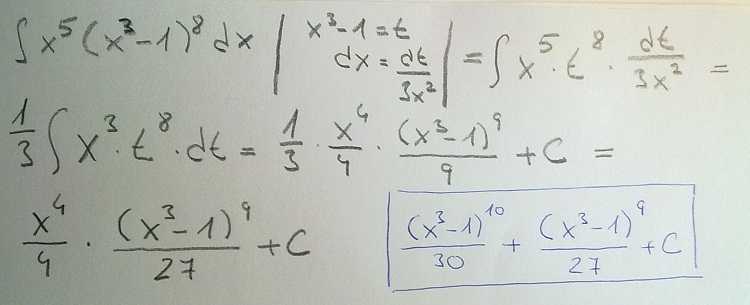 ∫ x⁵ (x³-1)⁸ dx | x³-1 = t dx = dt/3x² | = ∫ x⁵ · t⁸ · dt/3x² =
1/3 ∫ x³ · t⁸ · dt = 1/3 · x⁴/4 · (x³-1)⁹/9 + C =
x⁴/4 · (x³-1)⁹/27 + C
(x³-1)¹⁰/30 + (x³-1)⁹/27 + C